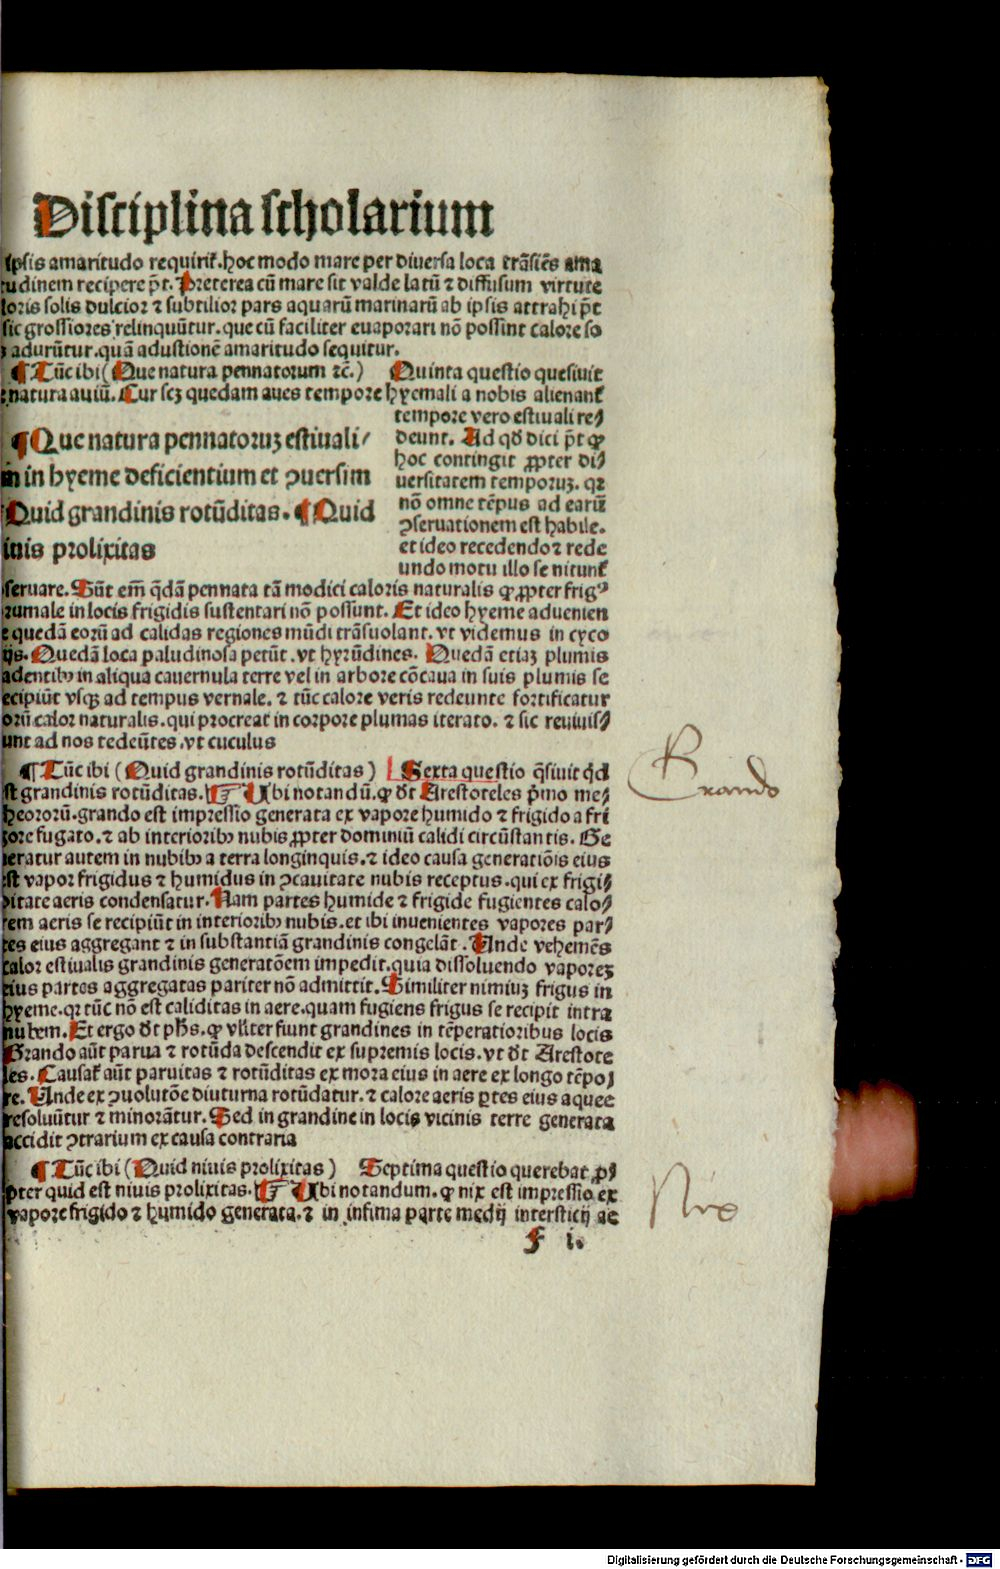 Disciplina scholarium
ipsis amaritudo requirit̃. hoc modo mare per diuersa loca trãsiẽs ama
tudinem recipere p̃t. Preterea cũ mare sit valde latũ ⁊ diffusum virtute
loris solis dulcior ⁊ subtilior pars aquarũ marinarũ ab ipsis attrahi p̃t
sic grossiores relinquũtur. que cũ faciliter euaporari nõ possint calore so
adurũtur. quã adustionẽ amaritudo sequitur.
¶ Tũc ibi (Que natura pennatorum ⁊c̃.) Quinta questio quesiuit
natura auiũ. Cur scꝫ quedam aues tempore hyemali a nobis alienant̃
tempore vero estiuali re⸗
deunt. Ad qð dici p̃t ꝙ
hoc contingit ꝓpter di⸗
uersitatem temporuꝫ. qꝛ
nõ omne tẽpus ad earũ
ꝯseruationem est habile.
et ideo recedendo ⁊ rede
undo motu illo se nitunt̃
¶ Que natura pennatoruꝫ estiuali⸗
in hyeme deficientium et ꝯuersim
Quid grandinis rotũditas. ¶ Quid
inis prolixitas
seruare. Sũt em̃ q̃dã pennata tã modici caloris naturalis ꝙ ꝓpter frigꝰ
rumale in locis frigidis sustentari nõ possunt. Et ideo hyeme aduenien
e quedã eorũ ad calidas regiones mũdi trãsuolant. vt videmus in cyco
ijs. Quedã loca paludinosa petũt. vt hyrũdines. Quedã etiaꝫ plumis
adentibꝰ in aliqua cauernula terre vel in arbore cõcaua in suis plumis se
ecipiũt vsqꝫ ad tempus vernale. ⁊ tũc calore veris redeunte fortificatur
orũ calor naturalis. qui procreat in corpore plumas iterato. ⁊ sic reuiuis⸗
unt ad nos redeũtes. vt cuculus
¶ Tũc ibi (Quid grandinis rotũditas) Sexta questio q̃siuit qͥd
st grandinis rotũditas. ☞ Ubi notandũ. ꝙ ðt Arestoteles p̃mo me⸗
theororũ. grando est impressio generata ex vapore humido ⁊ frigido a fri
gore fugato. ⁊ ab interioribꝰ nubis ꝓpter dominiũ calidi circũstantis. Ge
neratur autem in nubibꝰ a terra longinquis. ⁊ ideo causa generatiõis eius
est vapor frigidus ⁊ humidus in ꝯcauitate nubis receptus. qui ex frigi⸗
ditate aeris condensatur. Nam partes humide ⁊ frigide fugientes calo⸗
rem aeris se recipiũt in interioribꝰ nubis. et ibi inuenientes vapores par⸗
tes eius aggregant ⁊ in substantiã grandinis congelãt. Unde vehemẽs
calor estiualis grandinis generatõem impedit. quia dissoluendo vaporeꝫ
eius partes aggregatas pariter nõ admittit. Similiter nimiuꝫ frigus in
hyeme. qꝛ tũc nõ est caliditas in aere. quam fugiens frigus se recipit intra
nubem. Et ergo ðt pħs. ꝙ vl̃iter fiunt grandines in tẽperatioribus locis
Grando aũt parua ⁊ rotũda descendit ex supremis locis. vt ðt Arestote
les. Causat̃ aũt paruitas ⁊ rotũditas ex mora eius in aere ex longo tẽpo⸗
re. Unde ex ꝯuolutõe diuturna rotũdatur. ⁊ calore aeris ꝑtes eius aquee
resoluũtur ⁊ minorãtur. Sed in grandine in locis vicinis terre generata
accidit ꝯtrarium ex causa contraria
Grando
¶ Tũc ibi (Quid niuis prolixitas) Septima questio querebat ꝓ⸗
pter quid est niuis prolixitas. ☞ Ubi notandum. ꝙ nix est impressio ex
vapore frigido ⁊ humido generata. ⁊ in infima parte medij interstitij ae
Nix
f i.
Digitalisierung gefördert durch die Deutsche Forschungsgemeinschaft - DFG